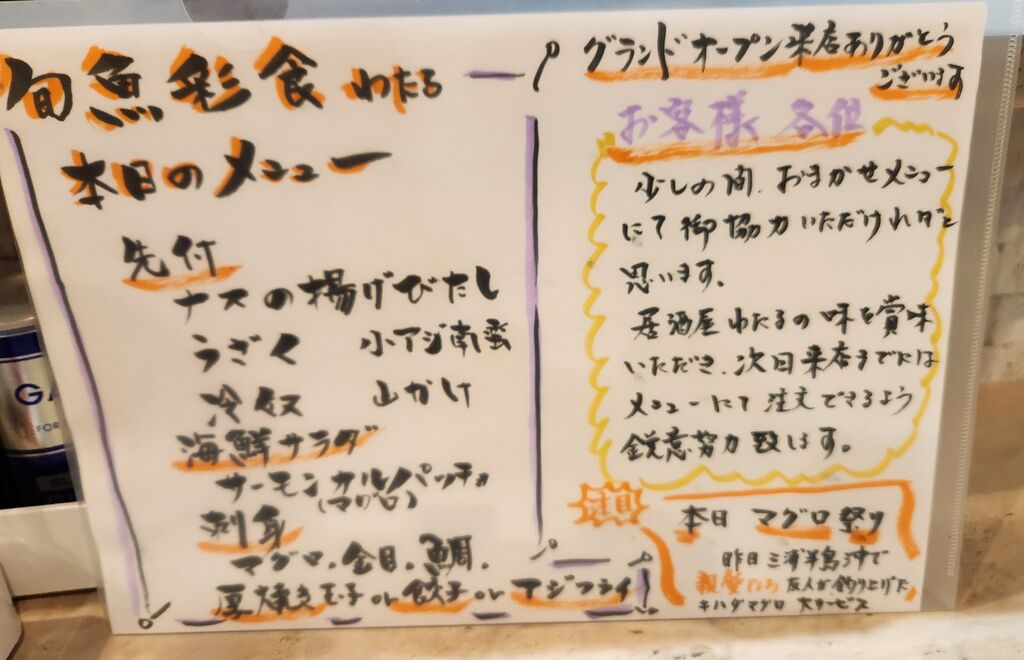 旬魚彩食 わたる
本日のメニュー
先付
ナスの揚げびたし
うざく 小アジ南蛮
冷奴 山かけ
海鮮サラダ
サーモンカルパッチョ
(マグロ)
刺身
マグロ、金目、鯛、
厚焼き玉子 or 餃子 or アジフライ
グランドオープン来店ありがとう
ございます
お客様 各位
少しの間、おまかせメニュー
にて御協力いただければと
思います。
居酒屋わたるの味を賞味
いただき、次回来店までには
メニューにて注文できるよう
鋭意努力致します。
本日 マグロ祭り
昨日 三浦半島沖で
親愛なる 友人が釣り上げた
キハダマグロ 大サービス
GA
FOR